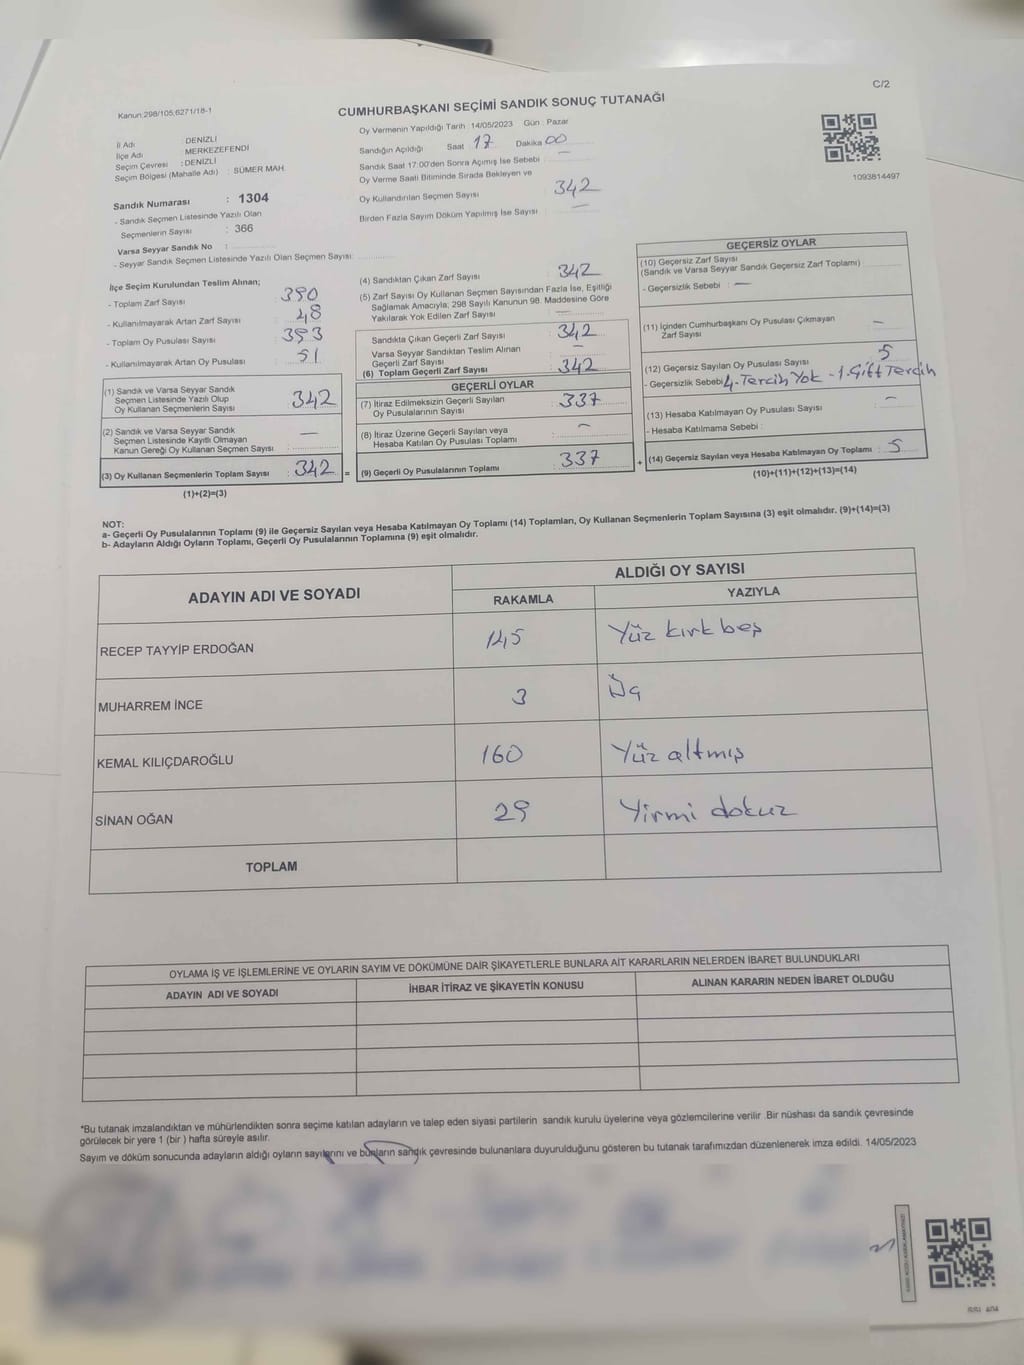 C/2
Kanun 298/105,6271/18-1
CUMHURBAŞKANI SEÇİMİ SANDIK SONUÇ TUTANAĞI
İl Adı DENİZLİ
İlçe Adı MERKEZEFENDİ
Seçim Çevresi : DENİZLİ
Seçim Bölgesi (Mahalle Adı) : SÜMER MAH.
Sandık Numarası : 1304
- Sandık Seçmen Listesinde Yazılı Olan
Seçmenlerin Sayısı : 366
Varsa Seyyar Sandık No :
- Seyyar Sandık Seçmen Listesinde Yazılı Olan Seçmen Sayısı:
Oy Vermenin Yapıldığı Tarih :14/05/2023 Gün : Pazar
Sandığın Açıldığı Saat 17 Dakika 00
Sandık Saat 17:00'den Sonra Açımış İse Sebebi : —
Oy Verme Saati Bitiminde Sırada Bekleyen ve
Oy Kullandırılan Seçmen Sayısı 342
Birden Fazla Sayım Döküm Yapılmış İse Sayısı : —
1093814497
İlçe Seçim Kurulundan Teslim Alınan;
- Toplam Zarf Sayısı : 390
- Kullanılmayarak Artan Zarf Sayısı : 48
- Toplam Oy Pusulası Sayısı : 393
- Kullanılmayarak Artan Oy Pusulası : 51
(1) Sandık ve Varsa Seyyar Sandık
Seçmen Listesinde Yazılı Olup
Oy Kullanan Seçmenlerin Sayısı : 342
(2) Sandık ve Varsa Seyyar Sandık
Seçmen Listesinde Kayıtlı Olmayan
Kanun Gereği Oy Kullanan Seçmen Sayısı : —
(3) Oy Kullanan Seçmenlerin Toplam Sayısı : 342 =
(1)+(2)=(3)
(4) Sandıktan Çıkan Zarf Sayısı : 342
(5) Zarf Sayısı Oy Kullanan Seçmen Sayısından Fazla İse, Eşitliği
Sağlamak Amacıyla; 298 Sayılı Kanunun 98. Maddesine Göre
Yakılarak Yok Edilen Zarf Sayısı : —
Sandıkta Çıkan Geçerli Zarf Sayısı : 342
Varsa Seyyar Sandıktan Teslim Alınan
Geçerli Zarf Sayısı : —
(6) Toplam Geçerli Zarf Sayısı : 342
GEÇERLİ OYLAR
(7) İtiraz Edilmeksizin Geçerli Sayılan
Oy Pusulalarının Sayısı : 337
(8) İtiraz Üzerine Geçerli Sayılan veya
Hesaba Katılan Oy Pusulası Toplamı : —
(9) Geçerli Oy Pusulalarının Toplamı : 337 +
GEÇERSİZ OYLAR
(10) Geçersiz Zarf Sayısı
(Sandık ve Varsa Seyyar Sandık Geçersiz Zarf Toplamı)
- Geçersizlik Sebebi : —
(11) İçinden Cumhurbaşkanı Oy Pusulası Çıkmayan
Zarf Sayısı : —
(12) Geçersiz Sayılan Oy Pusulası Sayısı : 5
- Geçersizlik Sebebi: 4-Tercih Yok - 1.Çift Tercih
(13) Hesaba Katılmayan Oy Pusulası Sayısı : —
- Hesaba Katılmama Sebebi :
(14) Geçersiz Sayılan veya Hesaba Katılmayan Oy Toplamı : 5
(10)+(11)+(12)+(13)=(14)
NOT:
a- Geçerli Oy Pusulalarının Toplamı (9) ile Geçersiz Sayılan veya Hesaba Katılmayan Oy Toplamı (14) Toplamları, Oy Kullanan Seçmenlerin Toplam Sayısına (3) eşit olmalıdır. (9)+(14)=(3)
b- Adayların Aldığı Oyların Toplamı, Geçerli Oy Pusulalarının Toplamına (9) eşit olmalıdır.
ADAYIN ADI VE SOYADI ALDIĞI OY SAYISI
RAKAMLA YAZIYLA
RECEP TAYYİP ERDOĞAN 145 Yüz kırk beş
MUHARREM İNCE 3 Üç
KEMAL KILIÇDAROĞLU 160 Yüz altmış
SİNAN OĞAN 29 Yirmi dokuz
TOPLAM
OYLAMA İŞ VE İŞLEMLERİNE VE OYLARIN SAYIM VE DÖKÜMÜNE DAİR ŞİKAYETLERLE BUNLARA AİT KARARLARIN NELERDEN İBARET BULUNDUKLARI
ADAYIN ADI VE SOYADI İHBAR İTİRAZ VE ŞİKAYETİN KONUSU ALINAN KARARIN NEDEN İBARET OLDUĞU
*Bu tutanak imzalandıktan ve mühürlendikten sonra seçime katılan adayların ve talep eden siyasi partilerin sandık kurulu üyelerine veya gözlemcilerine verilir .Bir nüshası da sandık çevresinde
görülecek bir yere 1 (bir ) hafta süreyle asılır.
Sayım ve döküm sonucunda adayların aldığı oyların sayılarını ve bunların sandık çevresinde bulunanlara duyurulduğunu gösteren bu tutanak tarafımızdan düzenlenerek imza edildi. 14/05/2023